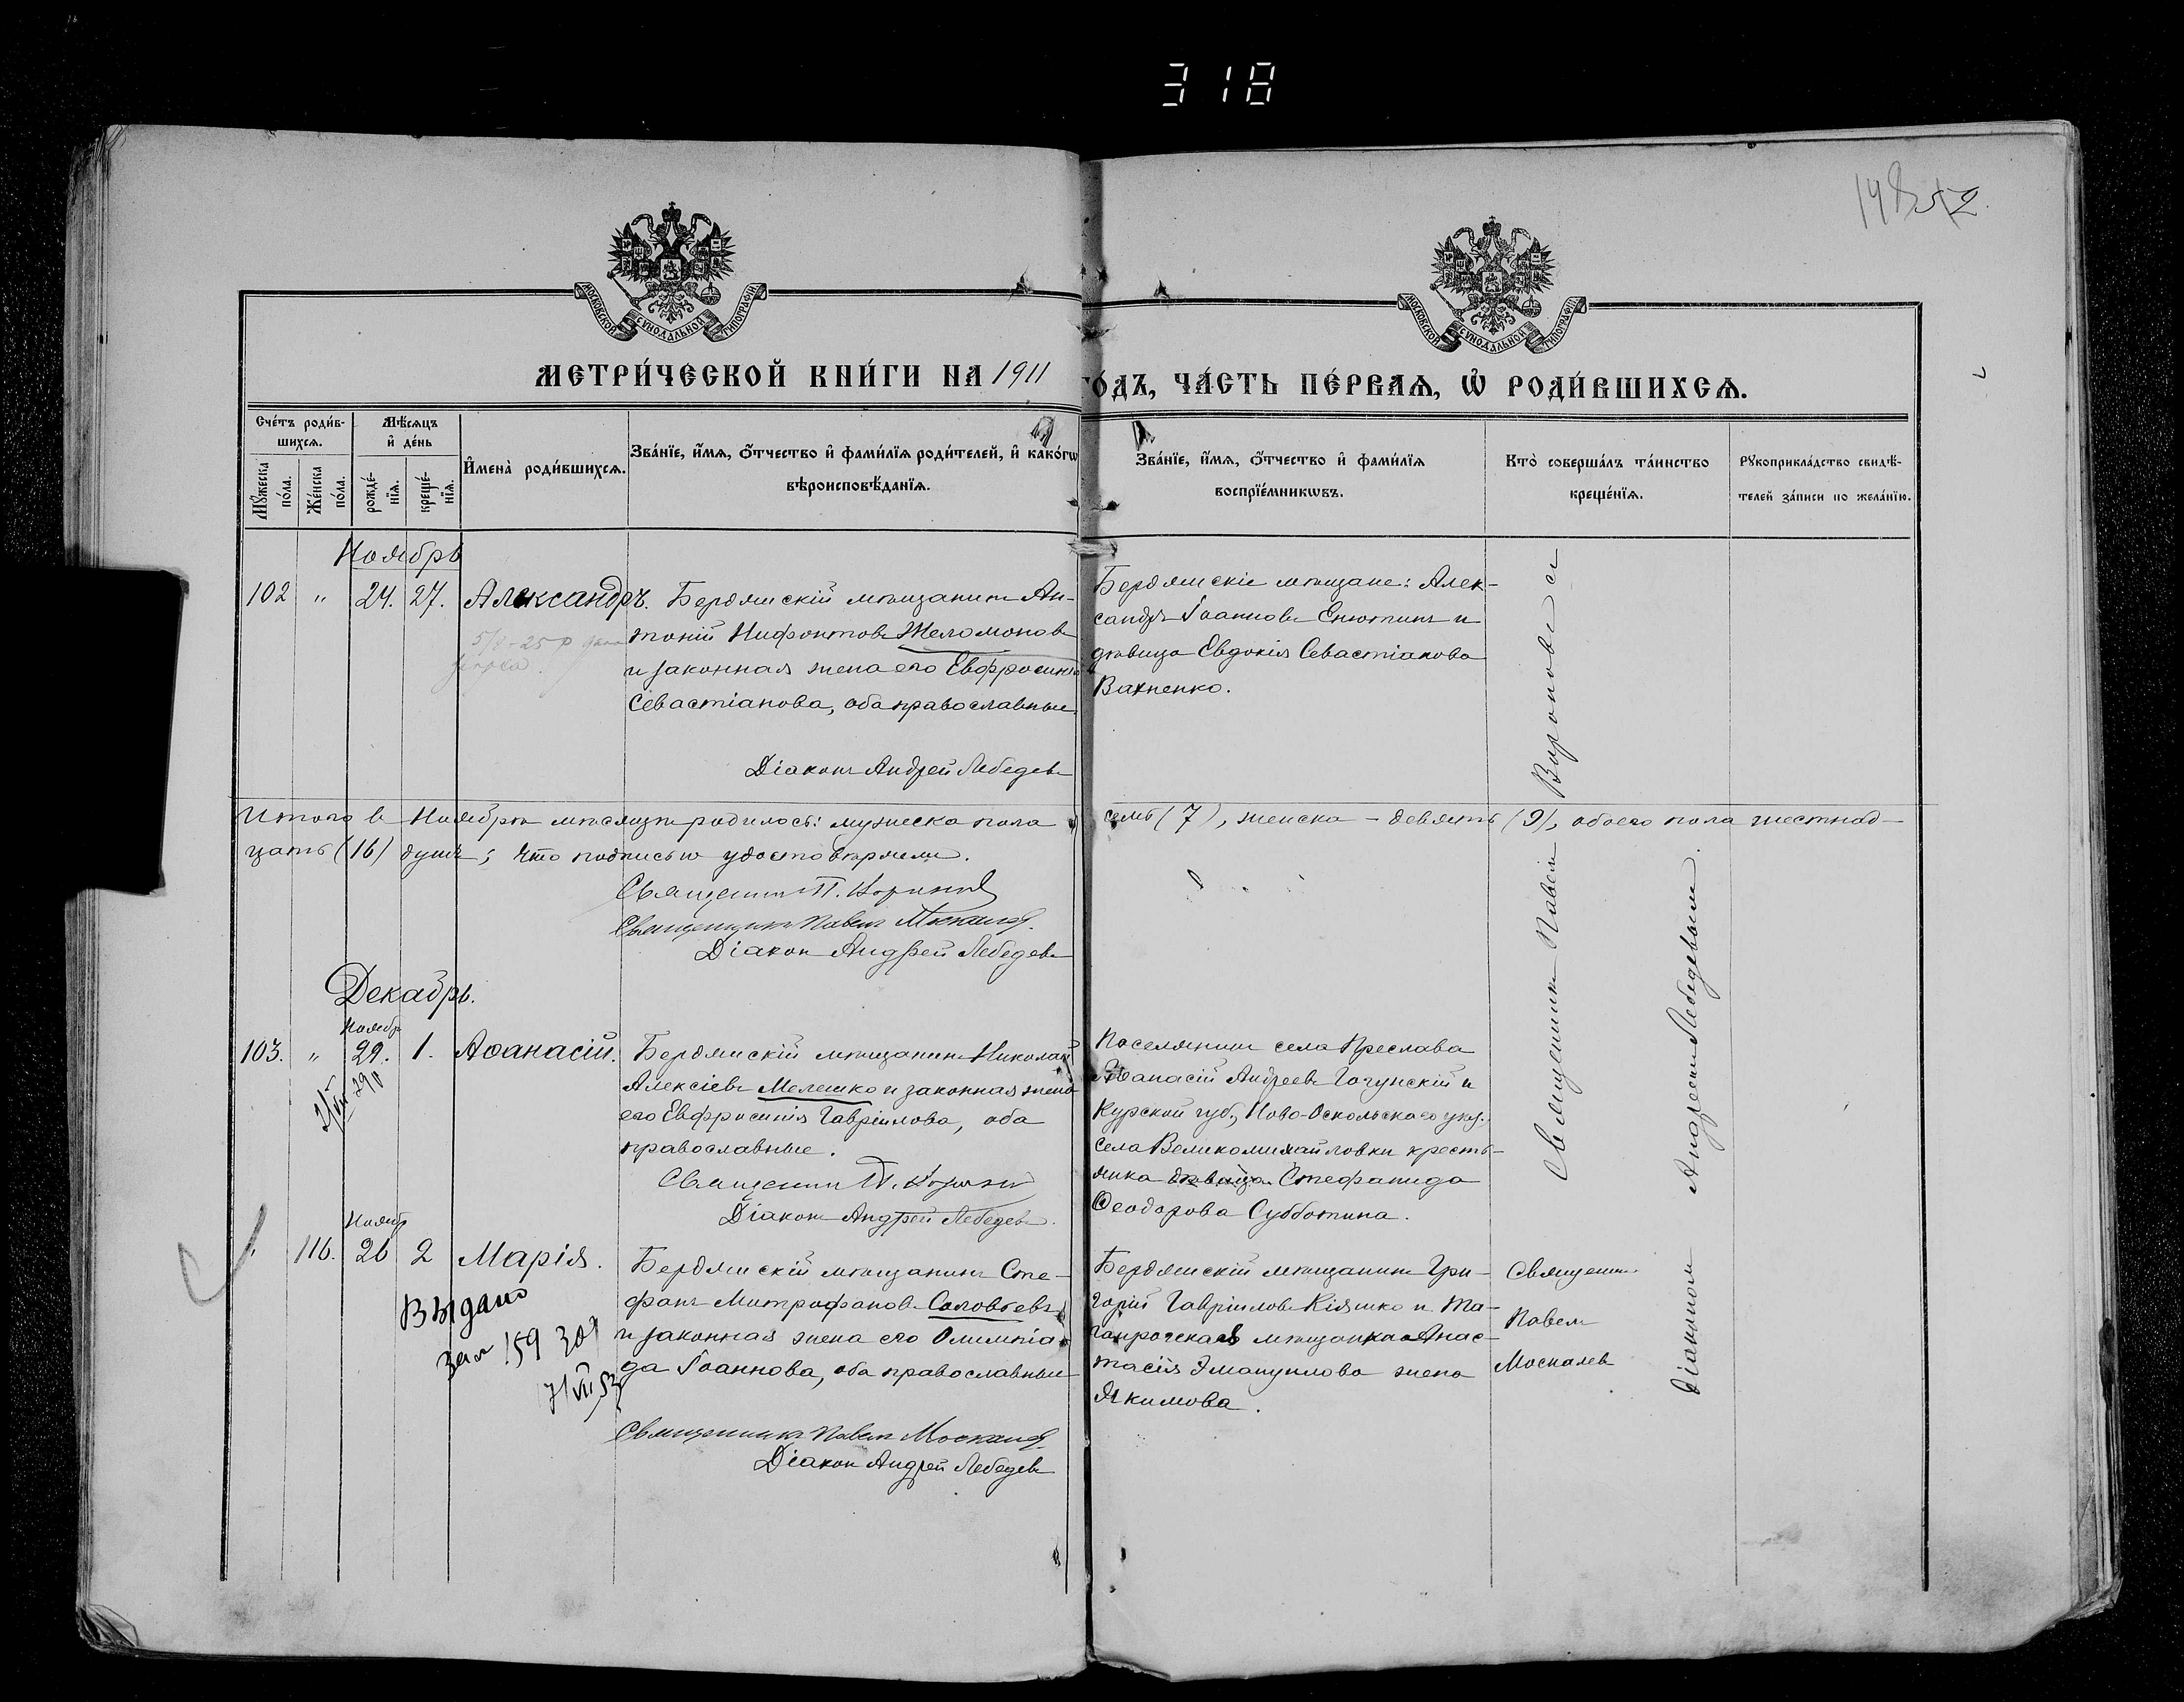 318
148 52
МОСКОВСКОЙ СѴНОДАЛЬНОЙ ТИПОГРАФІИ
МОСКОВСКОЙ СѴНОДАЛЬНОЙ ТИПОГРАФІИ
МЕТРИ́ЧЕСКОЙ КНИ́ГИ НА 1911 ГО́ДЪ, ЧА́СТЬ ПЕ́РВАѦ, Ѡ҆ РОДИ́ВШИХСѦ.
Сче́тъ роди́в-
шихсѧ.
Мꙋ́жеска по́ла.
Же́нска по́ла.
Мѣ́сѧцъ
и҆ де́нь
рожде́-
нїѧ.
креще́-
нїѧ.
И҆мена̀ роди́вшихсѧ.
Зва́нїе, и҆́мѧ, ѻ҆́тчество и҆ фами́лїѧ роди́телей, и҆ како́гѡ
вѣроисповѣ́данїѧ.
Зва́нїе, и҆́мѧ, ѻ҆́тчество и҆ фами́лїѧ
воспрїе́мникѡвъ.
Кто̀ соверша́лъ та́инство
креще́нїѧ.
Рꙋкоприкла́дство свидѣ́-
телей за́писи по жела́нїю.
Ноябрь
102 " 24. 27. Александръ.
Бердянскій мѣщанинъ Ан-
тоній Нифонтовъ Желомоновъ
и законная жена его Евфросинія
Севастіанова, оба православные.
Діаконъ Андрей Лебедевъ
Бердянскіе мѣщане: Алек-
сандръ Іоанновъ Енютинъ и
дѣвица Евдокія Севастіанова
Вахненко.
Итого въ Ноябрѣ мѣсяцѣ родилось: мужеска пола семь (7), женска - девять (9), обоего пола шестнад-
цать (16) душъ; что подписью удостовѣряемъ.
Священникъ П.
Священникъ Павелъ Москалевъ
Діаконъ Андрей Лебедевъ
Декабрь.
Ноябр
103. " 29. 1. Аѳанасій.
Бердянскій мѣщанинъ Николай
Алексіевъ Мелешко и законная жена
его Евфросинія Гавріилова, оба
православные.
Священникъ П.
Діаконъ Андрей Лебедевъ.
Поселянинъ села Преслава
Аѳанасій Андреевъ Гочунскій и
Курской губ., Ново-Оскольскаго уѣз.,
села Великомихайловки кресть-
янка дѣвица Стефанида
Ѳеодорова Субботина.
Ноябр
" 116. 26 2 Марія.
Выдано
159
7/VII 53
Бердянскій мѣщанинъ Сте-
фанъ Митрофановъ Соловьевъ
и законная жена его Олимпіа-
да Іоаннова, оба православные
Священникъ Павелъ Москалевъ
Діаконъ Андрей Лебедевъ
Бердянскій мѣщанинъ Гри-
горій Гавріиловъ Кіяшко и Та-
ганрогская мѣщанка Анас-
тасія Эмануилова жена
Якимова.
Священникъ
Павелъ
Москалевъ
Священникъ Павелъ
Діакономъ Андреемъ Лебедевымъ.